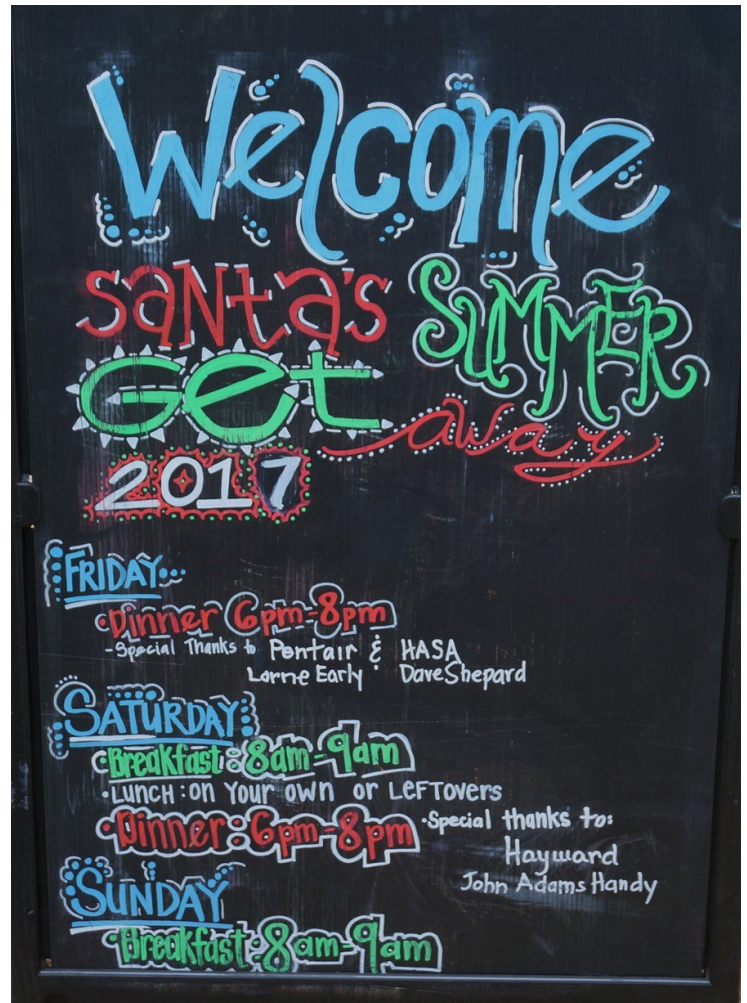 Welcome
Santa's SUMMER
Get away
2017
FRIDAY...
•Dinner 6pm-8pm
-Special Thanks to Pentair & HASA
Lorne Early • Dave Shepard
SATURDAY:
•Breakfast: 8am-9am
•LUNCH: on Your own or LEFTOVERS
•Dinner: 6pm-8pm •Special thanks to:
Hayward
John Adams Handy
SUNDAY
•Breakfast: 8am-9am